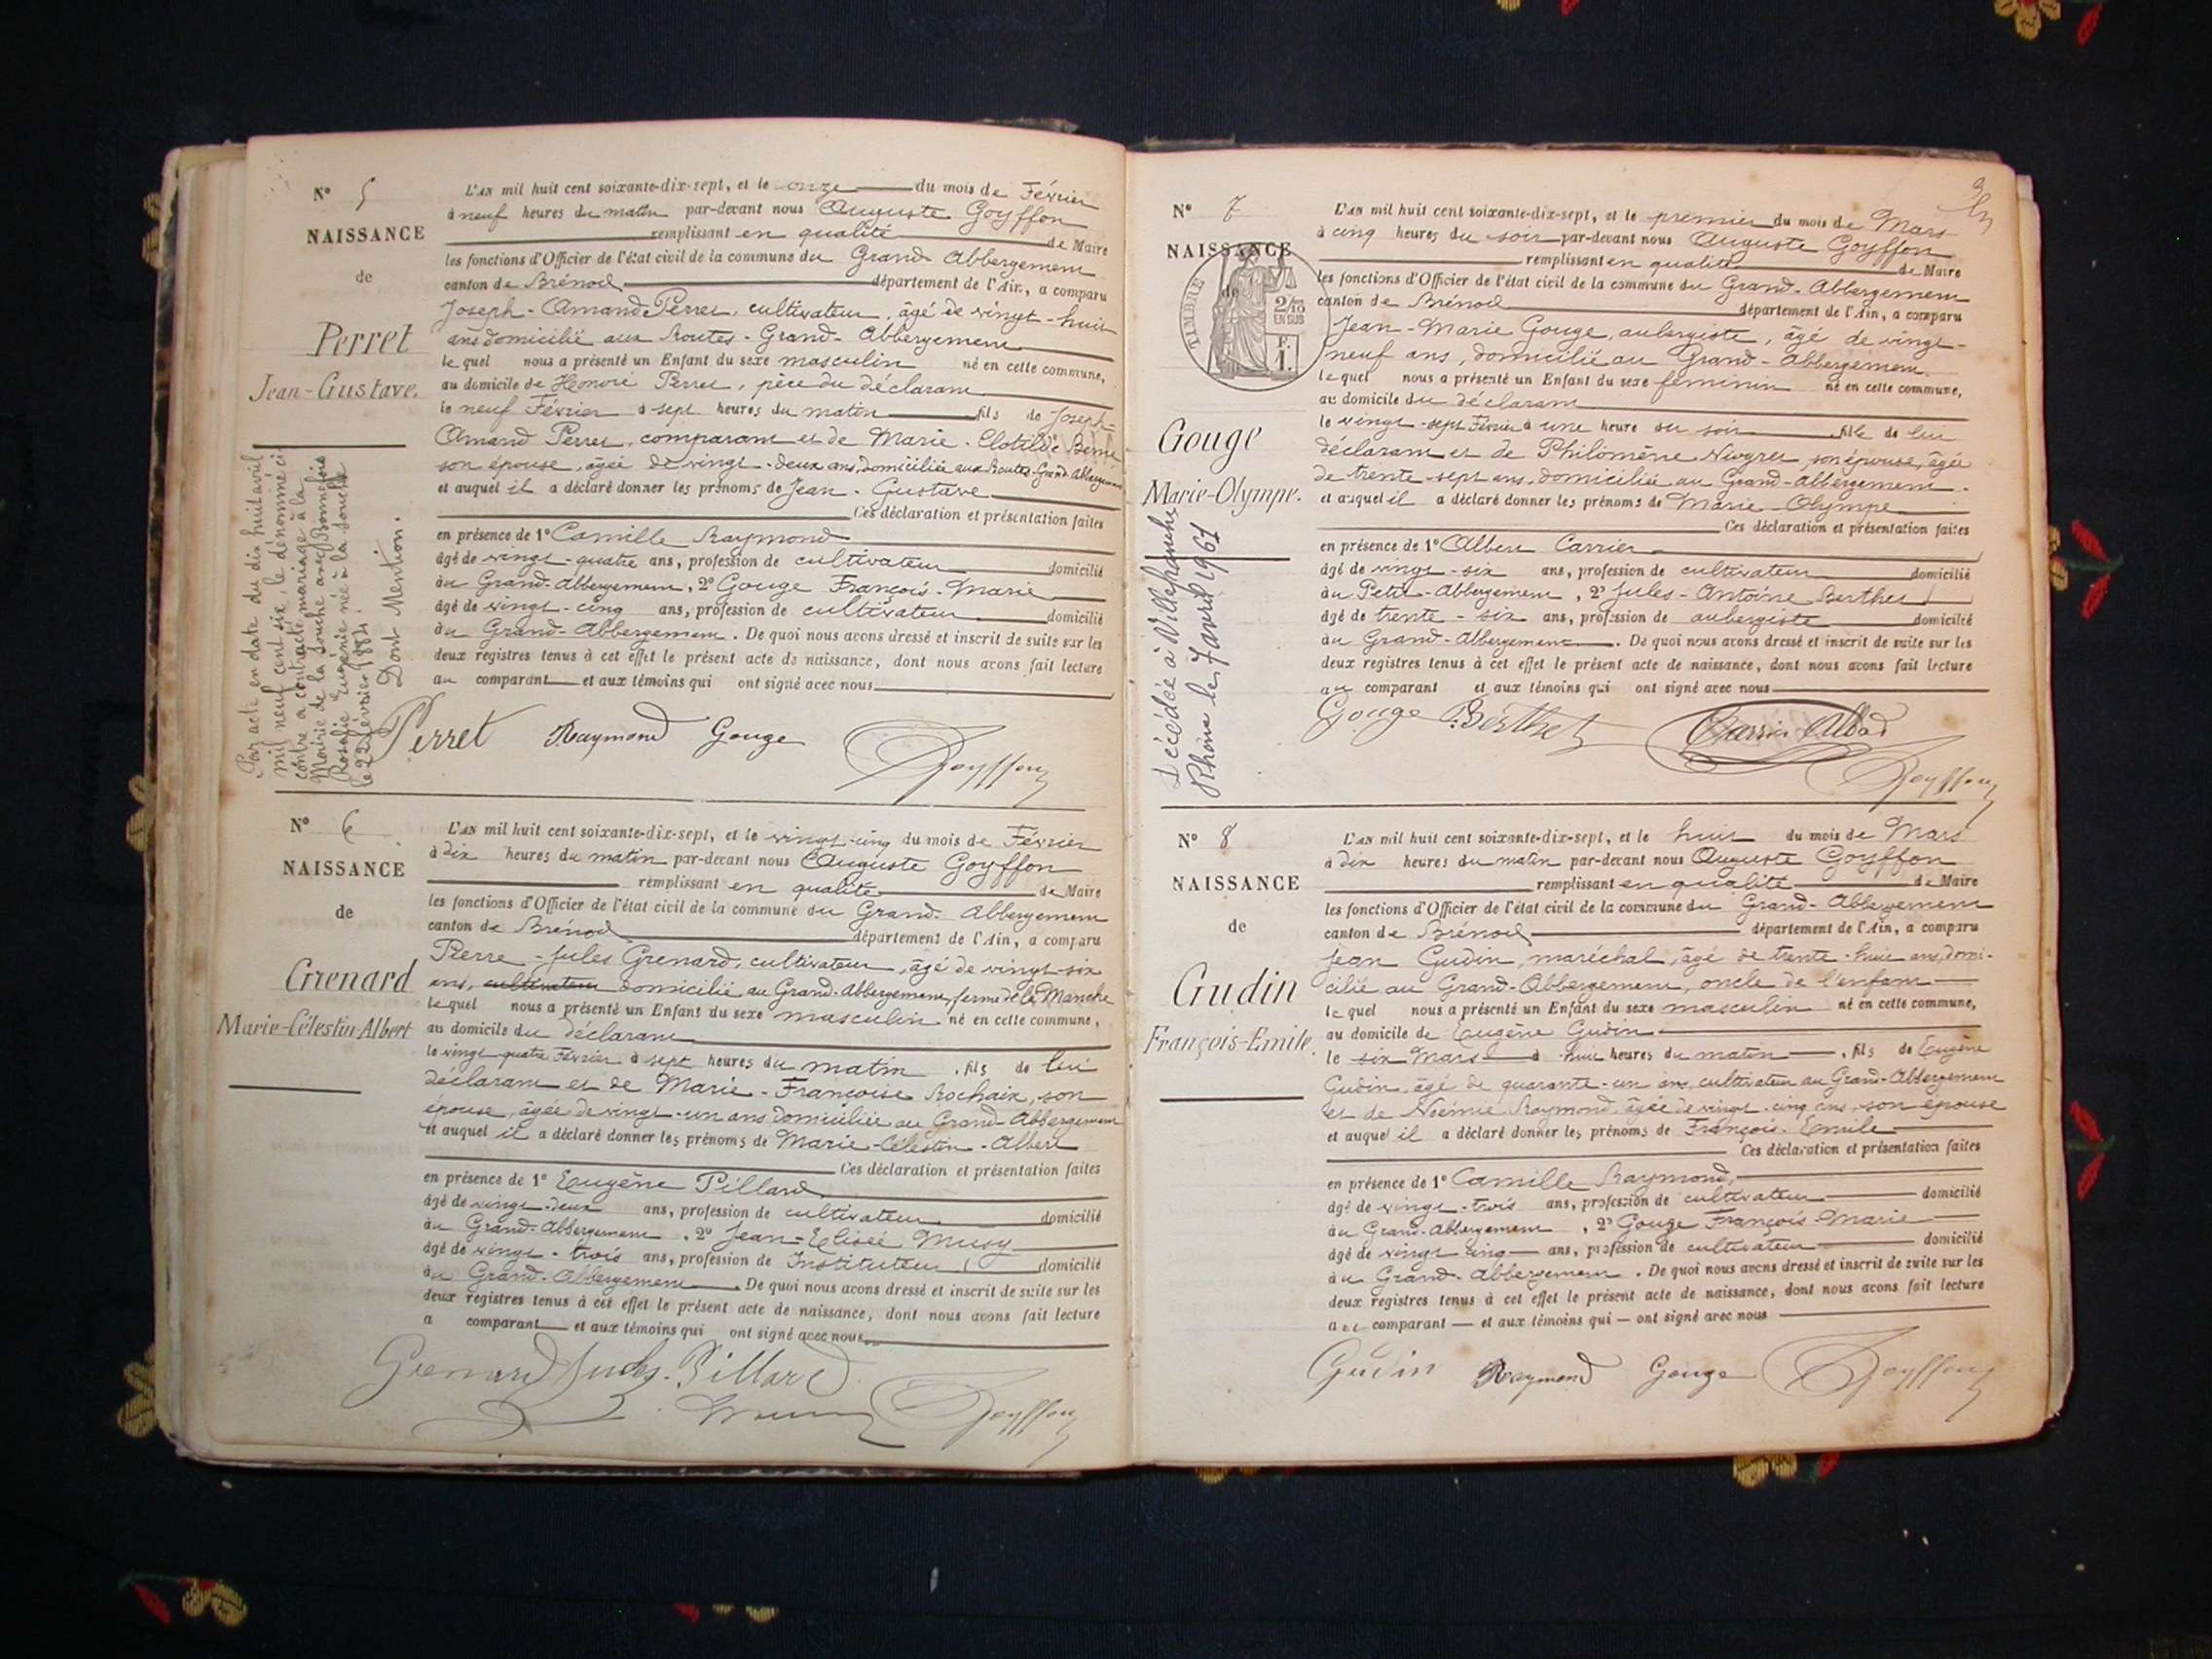 N° 5
NAISSANCE
de
Perret
Jean-Gustave.
Par acte en date du dix huit avril
mil neuf cent six, le dénommé ci
contre a contracté mariage à la
Mairie de la Souche avec Bonnefois
Rosalie Eugénie née à la Souche
le 22 février 1884.
Dont Mention.
L'AN mil huit cent soixante-dix-sept, et le onze du mois de Février
à neuf heures du matin par-devant nous Auguste Goyffon
remplissant en qualité de Maire
les fonctions d'Officier de l'état civil de la commune du Grand Abbergement
canton de Brénod département de l'Ain, a comparu
Joseph-Amand Perret, cultivateur, âgé de vingt-huit
ans domicilié aux Routes-Grand-Abbergement
lequel nous a présenté un Enfant du sexe masculin né en cette commune,
au domicile de Honoré Perret, père du déclarant
le neuf Février à sept heures du matin fils de Joseph-
Amand Perret, comparant et de Marie-Clotilde
son épouse, âgée de vingt-deux ans, domiciliée aux Routes-Grand-Abbergement
et auquel il a déclaré donner les prénoms de Jean-Gustave
Ces déclaration et présentation faites
en présence de 1° Camille Raymond
âgé de vingt-quatre ans, profession de cultivateur domicilié
au Grand-Abbergement, 2° Gouge François-Marie
âgé de vingt-cinq ans, profession de cultivateur domicilié
au Grand-Abbergement. De quoi nous avons dressé et inscrit de suite sur les
deux registres tenus à cet effet le présent acte de naissance, dont nous avons fait lecture
au comparant et aux témoins qui ont signé avec nous
Perret Raymond Gouge
Goyffon
N° 6
NAISSANCE
de
Grenard
Marie-Célestin-Albert
L'AN mil huit cent soixante-dix-sept, et le vingt-cinq du mois de Février
à dix heures du matin par-devant nous Auguste Goyffon
remplissant en qualité de Maire
les fonctions d'Officier de l'état civil de la commune du Grand-Abbergement
canton de Brénod département de l'Ain, a comparu
Pierre-Jules Grenard, cultivateur, âgé de vingt-six
ans, cultivateur domicilié au Grand-Abbergement, ferme de la Manche
lequel nous a présenté un Enfant du sexe masculin né en cette commune,
au domicile du déclarant
le vingt-quatre Février à sept heures du matin, fils de lui
déclarant et de Marie-Françoise Rochaix, son
épouse, âgée de vingt-un ans domiciliée au Grand-Abbergement
et auquel il a déclaré donner les prénoms de Marie-Célestin-Albert
Ces déclaration et présentation faites
en présence de 1° Eugène Pillard
âgé de vingt-deux ans, profession de cultivateur domicilié
au Grand-Abbergement, 2° Jean-Elisée Musy
âgé de vingt-trois ans, profession de Instituteur domicilié
au Grand-Abbergement. De quoi nous avons dressé et inscrit de suite sur les
deux registres tenus à cet effet le présent acte de naissance, dont nous avons fait lecture
a comparant et aux témoins qui ont signé avec nous
Grenard Jules. Pillard
Goyffon
N° 7
NAISSANCE
de
TIMBRE
2/10
EN SUS
F.
1.
Gouge
Marie-Olympe.
Décédée à Villefranche
Rhône le 7 avril 1961
L'AN mil huit cent soixante-dix-sept, et le premier du mois de Mars
à cinq heures du soir par-devant nous Auguste Goyffon
remplissant en qualité de Maire
les fonctions d'Officier de l'état civil de la commune du Grand-Abbergement
canton de Brénod département de l'Ain, a comparu
Jean-Marie Gouge, aubergiste, âgé de vingt-
neuf ans, domicilié au Grand-Abbergement
lequel nous a présenté un Enfant du sexe féminin né en cette commune,
au domicile du déclarant
le vingt-sept Février à une heure du soir fille de lui
déclarant et de Philomène Nivyret, son épouse, âgée
de trente-sept ans, domiciliée au Grand-Abbergement.
et auquel il a déclaré donner les prénoms de Marie-Olympe
Ces déclaration et présentation faites
en présence de 1° Albert Carrier
âgé de vingt-six ans, profession de cultivateur domicilié
au Petit-Abbergement, 2° Jules-Antoine Berthet
âgé de trente-six ans, profession de aubergiste domicilié
au Grand-Abbergement. De quoi nous avons dressé et inscrit de suite sur les
deux registres tenus à cet effet le présent acte de naissance, dont nous avons fait lecture
au comparant et aux témoins qui ont signé avec nous
Gouge Berthet Carrier
Goyffon
N° 8
NAISSANCE
de
Gudin
François-Emile.
L'AN mil huit cent soixante-dix-sept, et le huit du mois de Mars
à dix heures du matin par-devant nous Auguste Goyffon
remplissant en qualité de Maire
les fonctions d'Officier de l'état civil de la commune du Grand-Abbergement
canton de Brénod département de l'Ain, a comparu
Jean Gudin, maréchal, âgé de trente-huit ans, domi-
cilié au Grand-Abbergement, oncle de l'enfant
lequel nous a présenté un Enfant du sexe masculin né en cette commune,
au domicile de Eugène Gudin
le six Mars à huit heures du matin, fils de Eugène
Gudin, âgé de quarante-un ans, cultivateur au Grand-Abbergement
et de Noémie Raymond, âgée de vingt-cinq ans, son épouse
et auquel il a déclaré donner les prénoms de François-Emile
Ces déclaration et présentation faites
en présence de 1° Camille Raymond,
âgé de vingt-trois ans, profession de cultivateur domicilié
au Grand-Abbergement, 2° Gouge François-Marie
âgé de vingt cinq ans, profession de cultivateur domicilié
au Grand-Abbergement. De quoi nous avons dressé et inscrit de suite sur les
deux registres tenus à cet effet le présent acte de naissance, dont nous avons fait lecture
au comparant et aux témoins qui ont signé avec nous
Gudin Raymond Gouge Goyffon